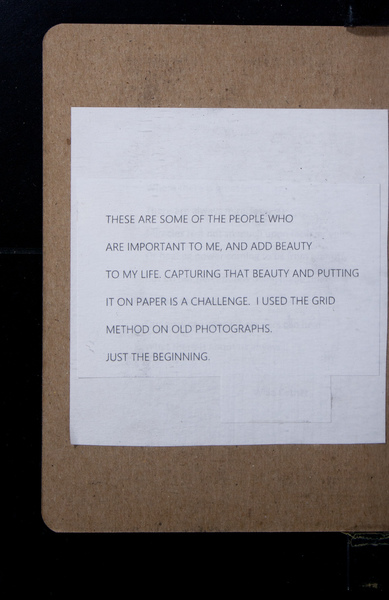 THESE ARE SOME OF THE PEOPLE WHO
ARE IMPORTANT TO ME, AND ADD BEAUTY
TO MY LIFE. CAPTURING THAT BEAUTY AND PUTTING
IT ON PAPER IS A CHALLENGE.  I USED THE GRID
METHOD ON OLD PHOTOGRAPHS.
JUST THE BEGINNING.